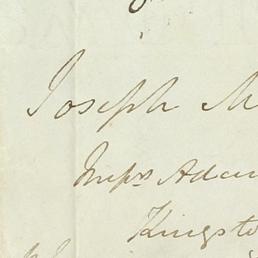 Joseph M
Messrs Adam
Kingsto